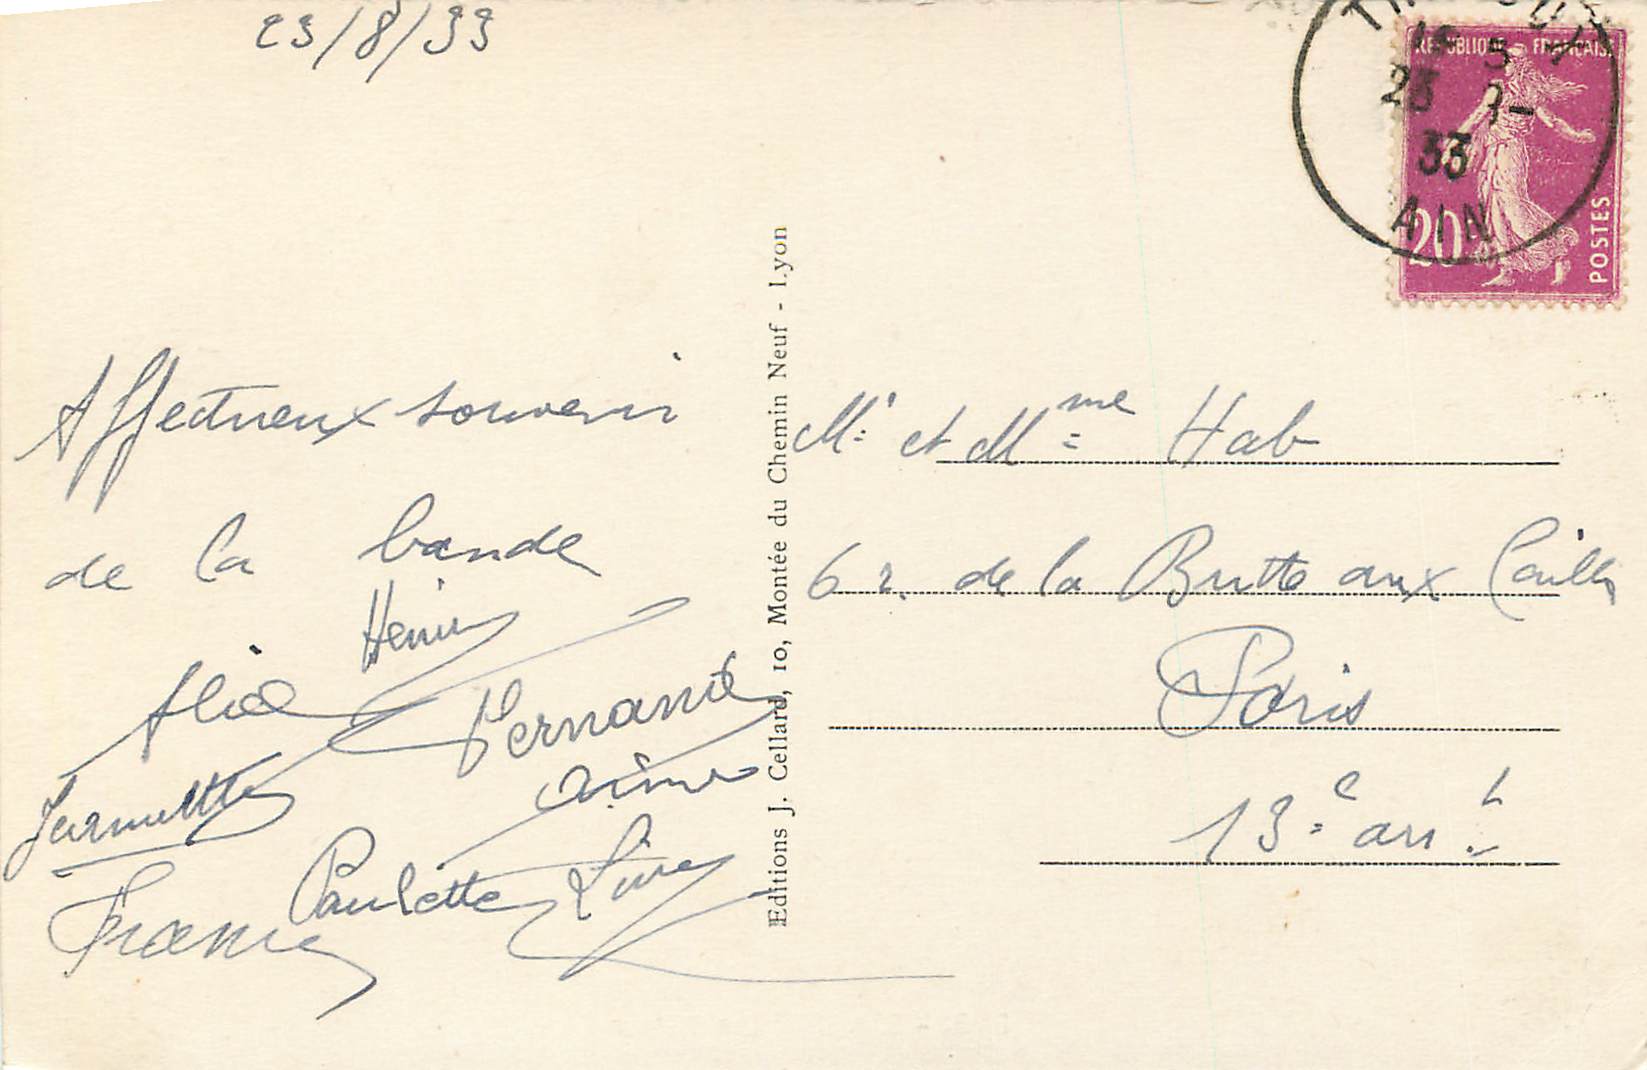 23/8/33
REPUBLIQUE FRANCAISE
23
33
AIN
20c
POSTES
Affectueux souvenir
de la bande
Henri
Alice
Fernand
Aimé
Paulette
Francis
Editions J. Cellard, 10, Montée du Chemin Neuf - Lyon
Mr et Mme Hab
6 r. de la Butte aux Cailles
Paris
13e arrt